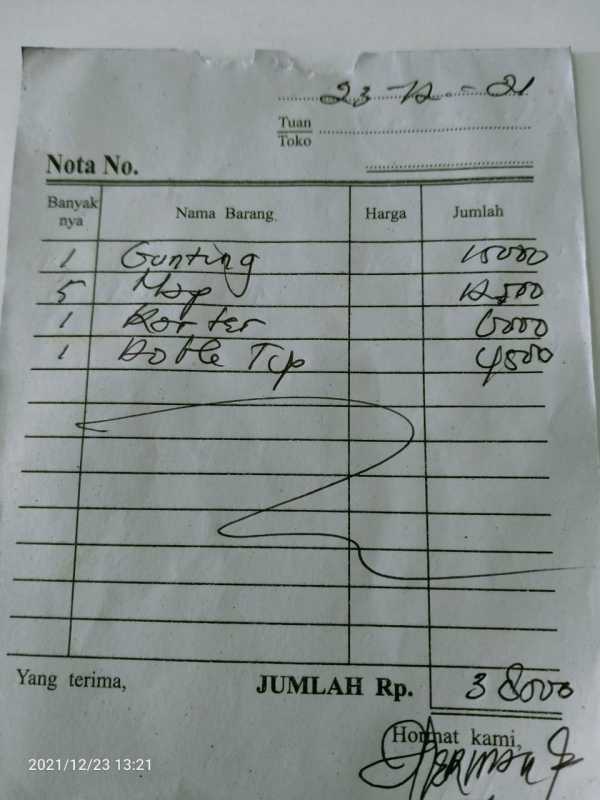 23-12-21
Tuan
Toko
Nota No.
Banyak nya Nama Barang Harga Jumlah
1 Gunting 15000
5 Map 12,500
1 Karter 6000
1 Doble Tip 4500
Yang terima, JUMLAH Rp. 38000
Hormat kami,
2021/12/23 13:21